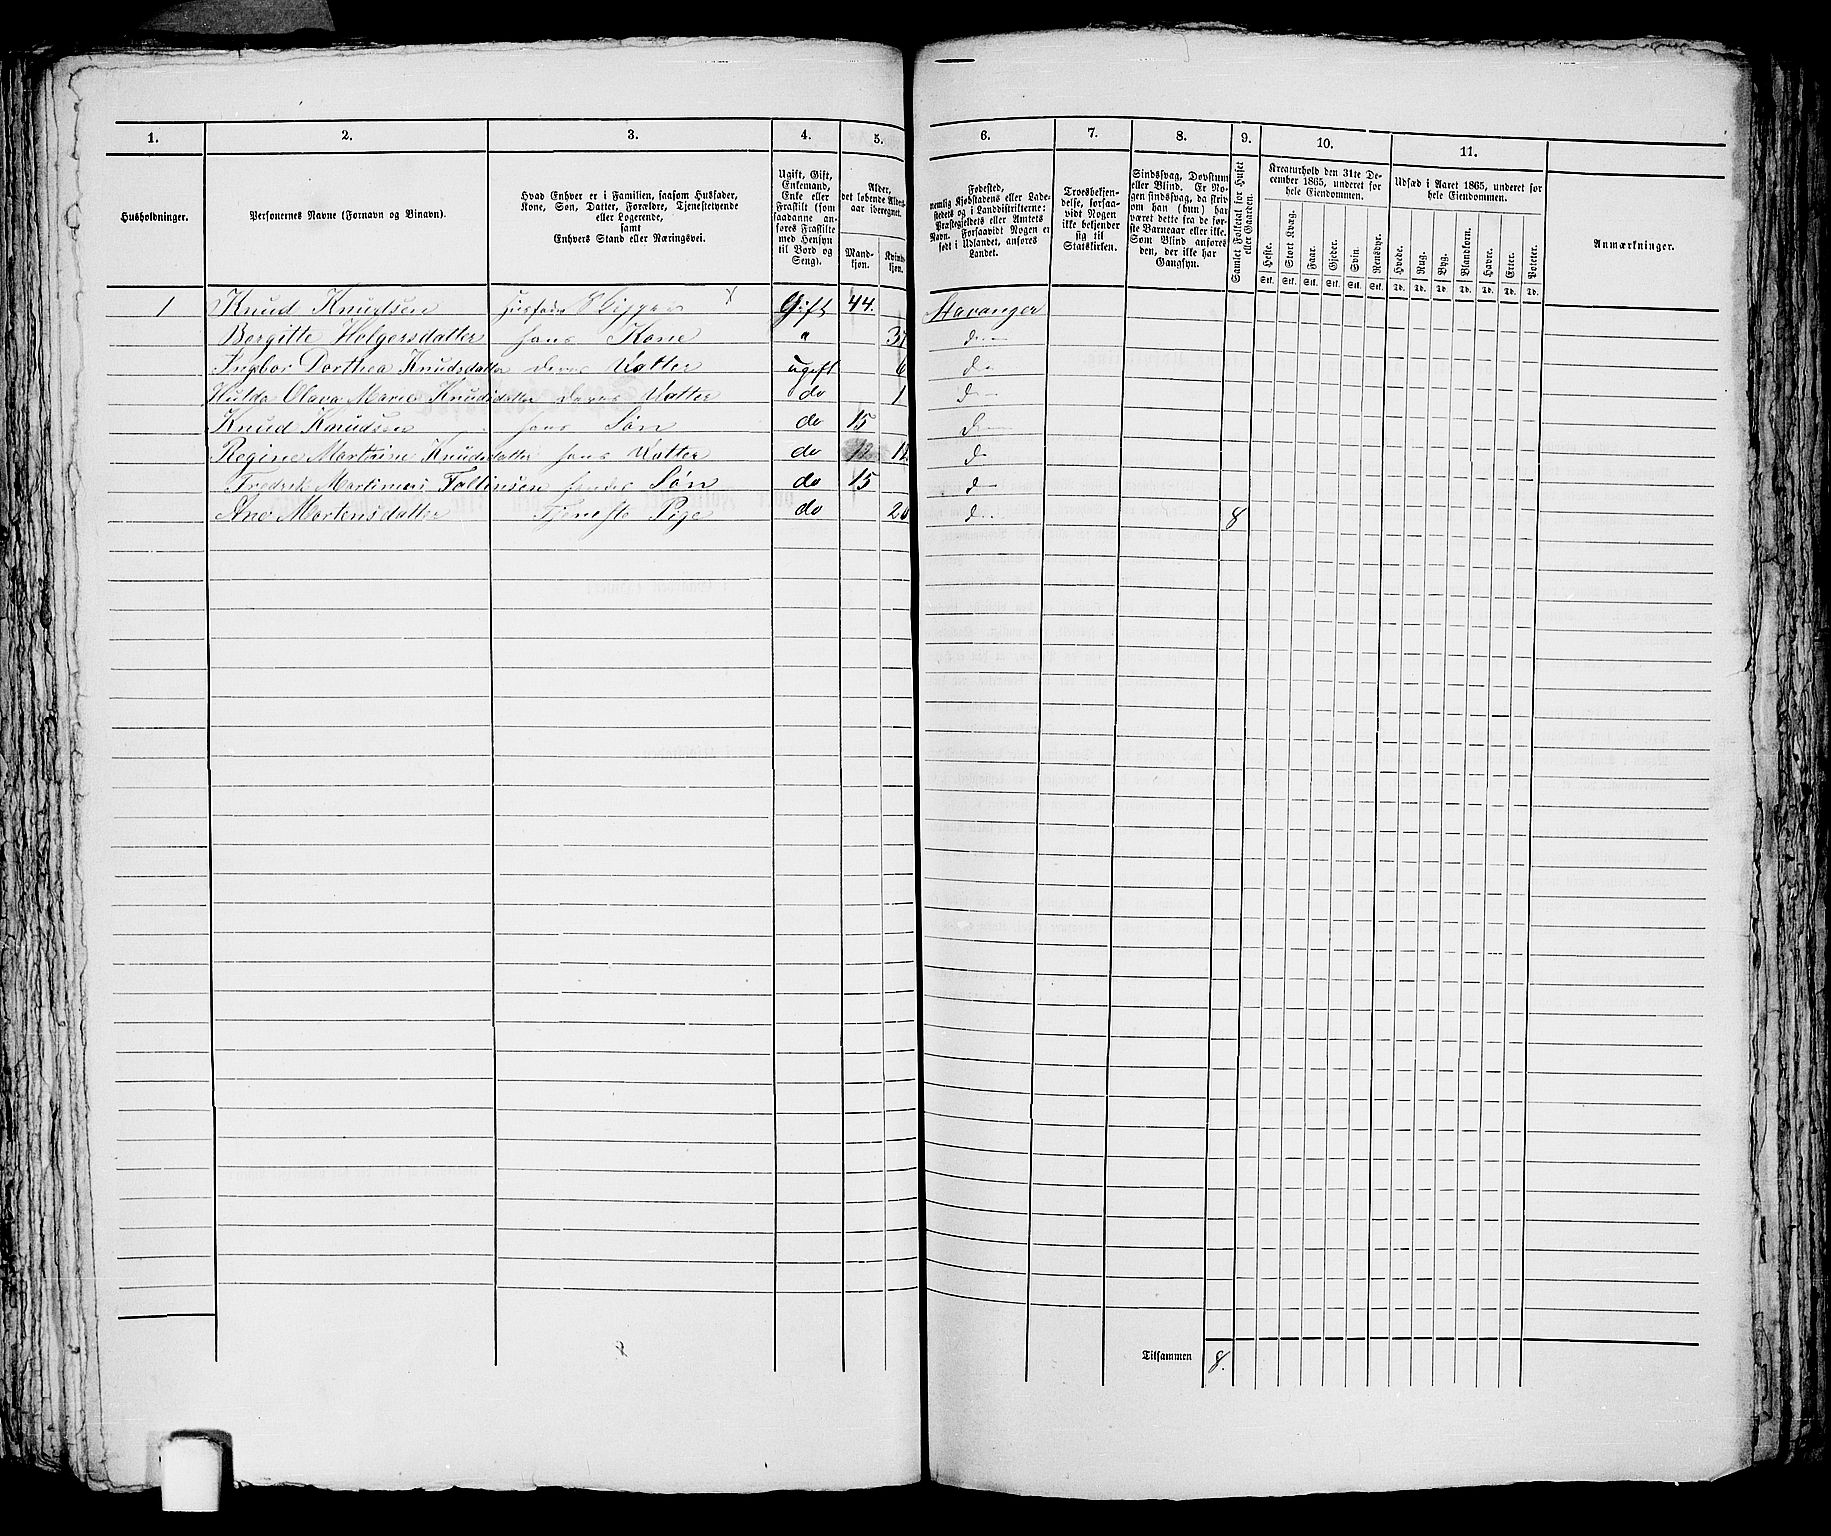 1. 2. 3. 4. 5. 6. 7. 8. 9. 10. 11.
Husholdninger.
Personernes Navne (Fornavn og Binavn).
Hvad Enhver er i Familien, saasom Husfader,
Kone, Søn, Datter, Forældre, Tjenestetyende
eller Logerende,
samt
Enhvers Stand eller Næringsvei.
Ugift, Gift,
Enkemand,
Enke eller
Fraskilt (som
saadanne an-
føres Fraskilte
med Hensyn
til Bord og
Seng).
Alder,
det løbende Alders-
aar iberegnet.
Mand-
kjøn.
Kvind-
kjøn.
Fødested,
nemlig Kjøbstadens eller Lade-
stedets og i Landdistrikterne:
Præstegjældets eller Amtets
Navn. Forsaavidt Nogen er
født i Udlandet, anføres
Landet.
Troesbekjen-
delse, forsaa-
vidt Nogen
ikke bekjender
sig til
Statskirken.
Sindssvag, Døvstum
eller Blind. Er No-
gen sindssvag, da skriv
om han (hun) har
været dette fra de før-
ste Barneaar eller ikke.
Som Blind anføres
den, der ikke har
Gangsyn.
Samlet Folketal for Huset
eller Gaarden.
Kreaturhold den 31te De-
cember 1865, underet for
hele Eiendommen.
Heste. Stort Kvæg. Faar. Gjeder. Svin. Rensdyr.
Stk. Stk. Stk. Stk. Stk. Stk.
Udsæd i Aaret 1865, underet for
hele Eiendommen.
Hvede. Rug. Byg. Blandkorn. Havre. Erter. Poteter.
Td. Td. Td. Td. Td. Td. Td.
Anmærkninger.
1 Knud Knudsen Husfader Skipper x Gift 44. Stavanger
Bergitte Holgersdatter hans Kone " 37 do
Ingbor Dorthea Knudsdatter deres Datter ugift 6 do
Hulda Olava Marie Knudsdatter deres Datter do 1 do
Knud Knudsen hans Søn do 15 do
Regine Martine Knudsdatter hans Datter do 12 do
Fredrik Martinus hendes Søn do 15 do
Ane Mortensdatter Tjeneste Pige do 20 do 8
8
Tilsammen 8.